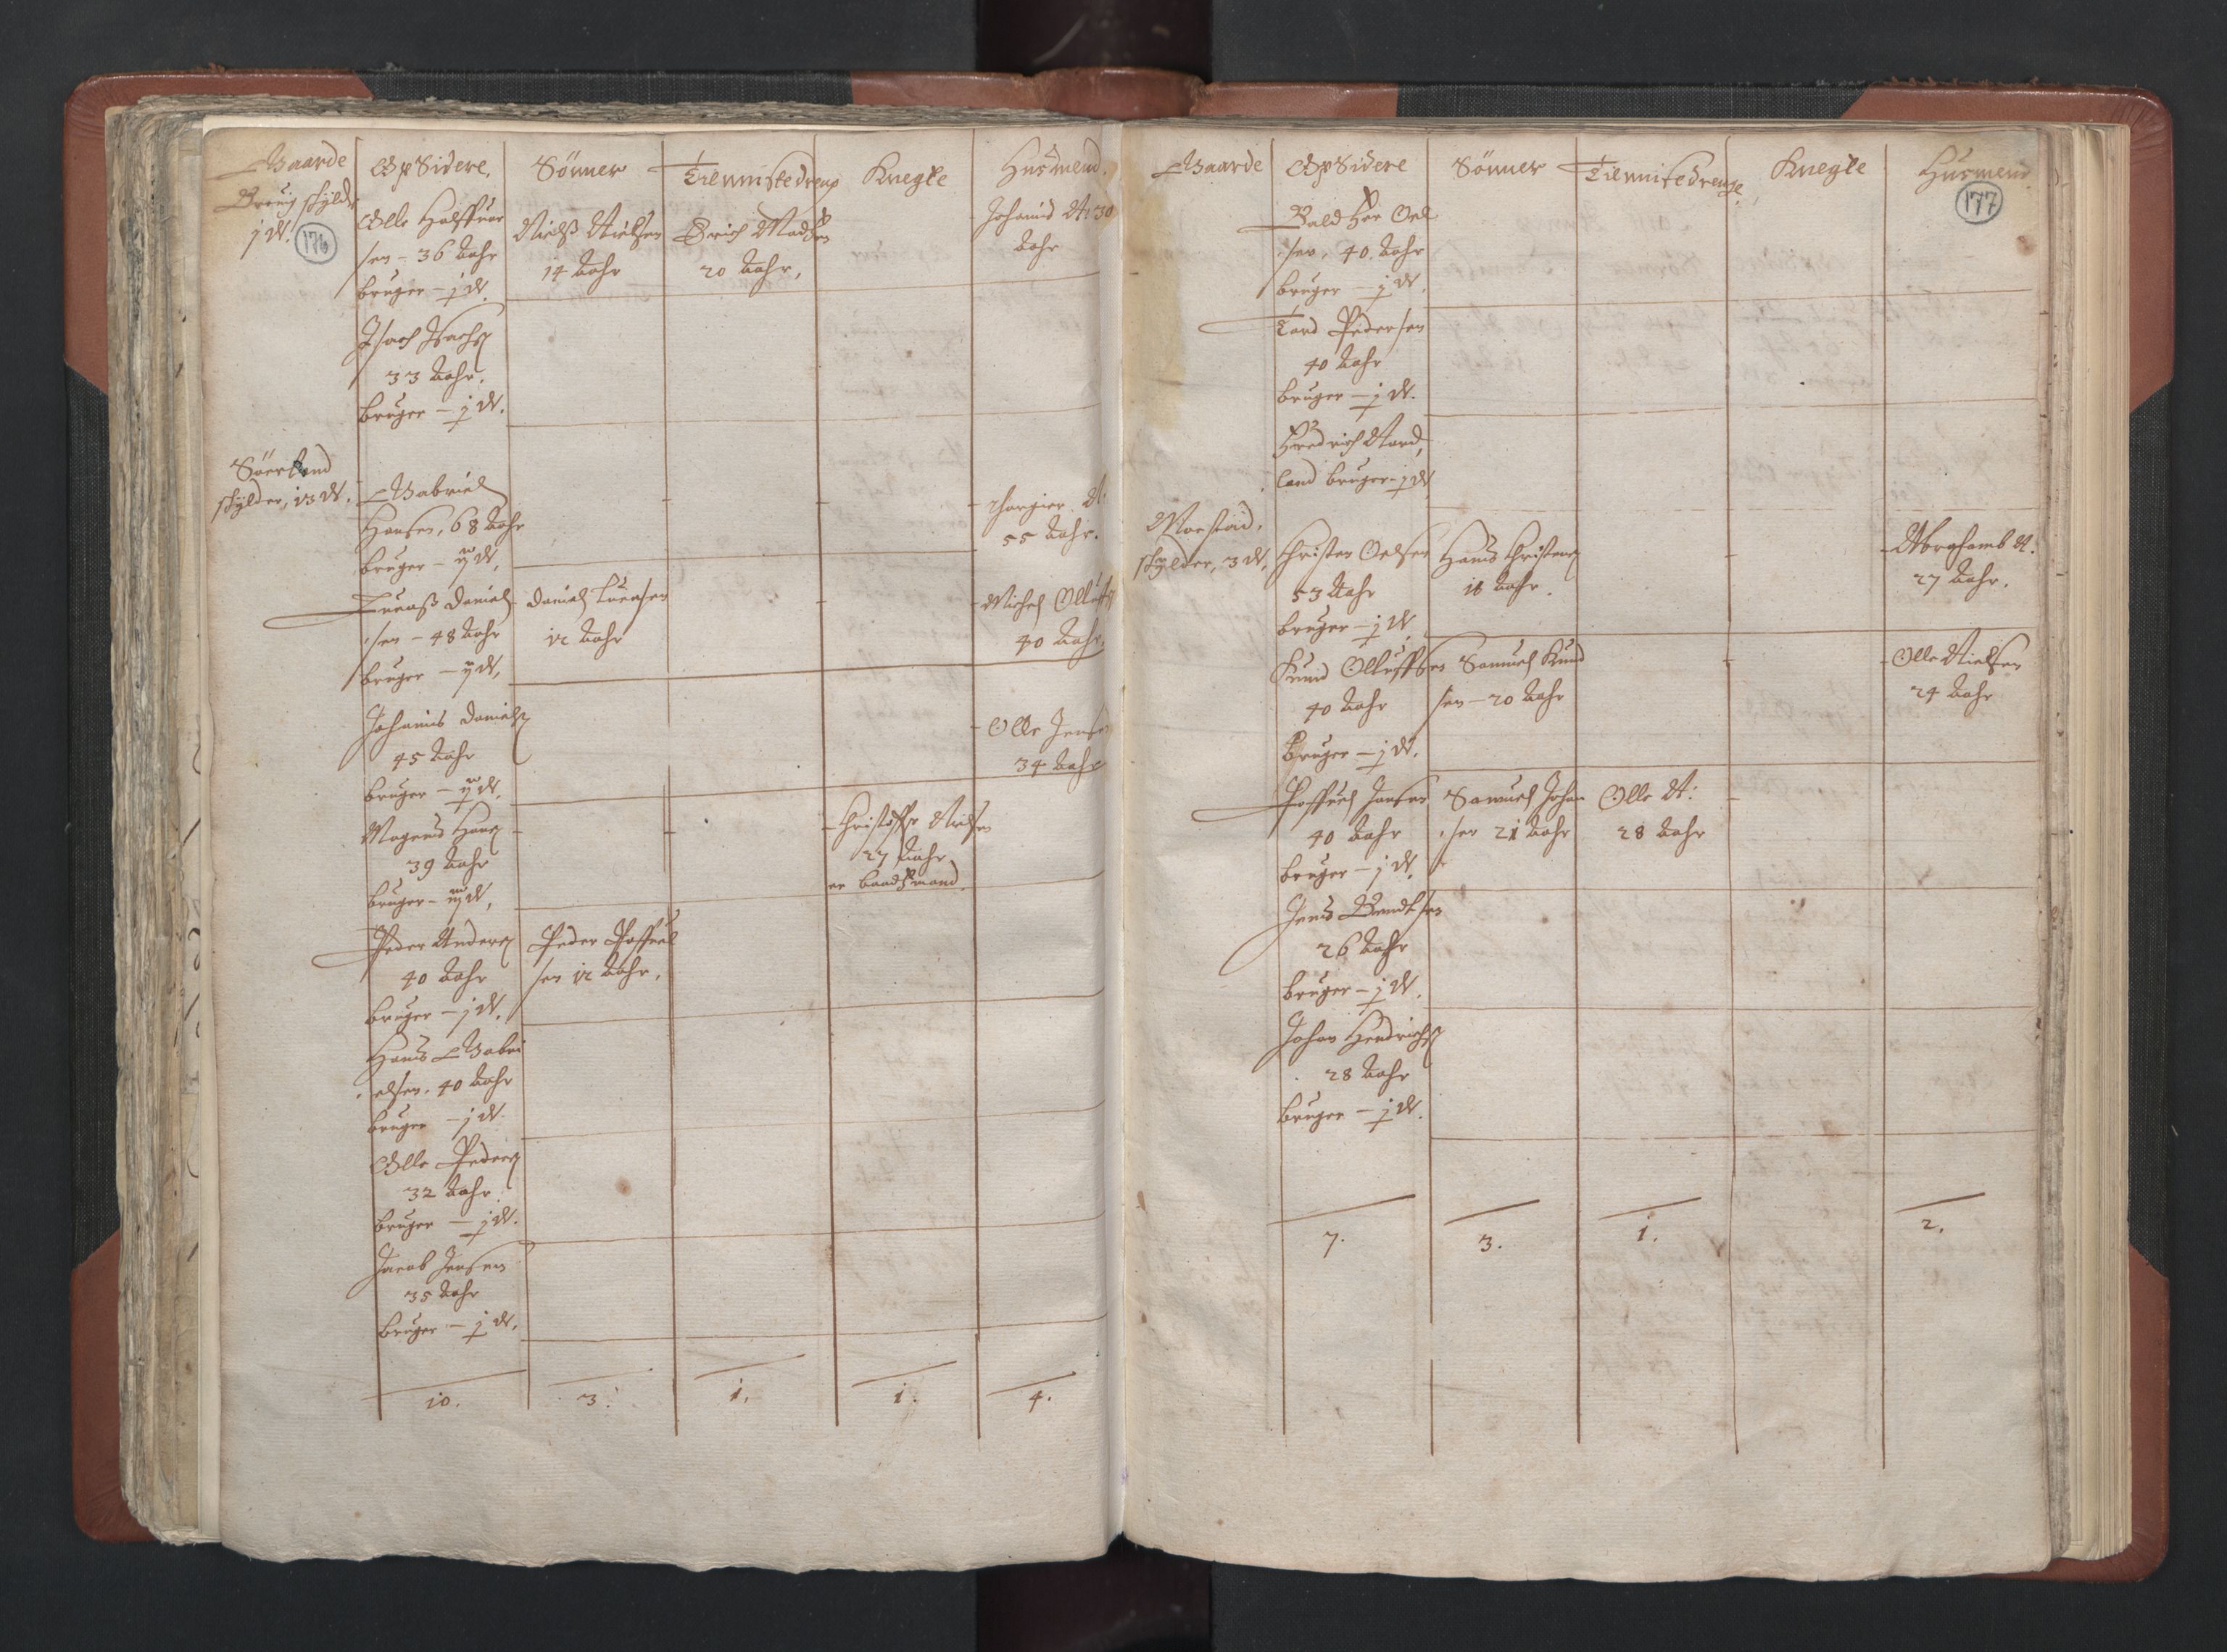 Gaarde
Opsidere,
Sönner
Tiennistedreng
Knegte
Husmend.
176
Olle Halffuor
sen - 36 Aahr
bruger - j W.
Nielß Nielsen
14 Aahr
Erich Madsen
20 Aahr,
Johanis N: 30
Aahr
Isach Isachs
33 Aahr.
bruger - j W.
skylder, 13 W.
Gabriel
Hansen, 68 Aahr
bruger - ij W,
55 Aahr.
Daniel
sen - 48 Aahr
bruger - ij W,
Daniel
12 Aahr
Michel Olluffs
40 Aahr.
Johanis Daniels
45 Aahr
bruger - ij W.
Olle Jens
34 Aahr
Mogens Hans
39 Aahr
bruger - iij W,
Christoffer Nielsen
27 Aahr
er baadsmand.
Peder Anders
40 Aahr
bruger - j W.
Peder Poffuel
sen 12 Aahr,
Hans Gabri
elsen. 40 Aahr
bruger - j W.
Olle Peders
32 Aahr
bruger - j W.
Jacob Jensen
35 Aahr
bruger - j W.
10.
3.
1.
1.
4.
Gaarde
Opsidere
Sönner
Tiennistedrenge
Knegte
Husmend
177
sen, 40. Aahr
bruger - j W.
Tord Pedersen
40 Aahr
bruger - j W.
Hendrich Nord
land bruger - j W
skylder, 3 W,
Christen Oelsen
53 Aahr
bruger - j W
Hans Christens
18 Aahr.
Abrahamb N.
27 Aahr.
Knud Olluffsen
40 Aahr
bruger - j W.
Samuel Knud
sen - 20 Aahr
Olle Nielsen
24 Aahr
Poffuel Jensen
40 Aahr
bruger - j W.
Samuel Johan
sen 21 Aahr
Olle N:
28 Aahr
Jens Bendtsen
26 Aahr
bruger - j W.
Johan Hendrichs
28 Aahr
bruger - j W.
7.
3.
1.
2.